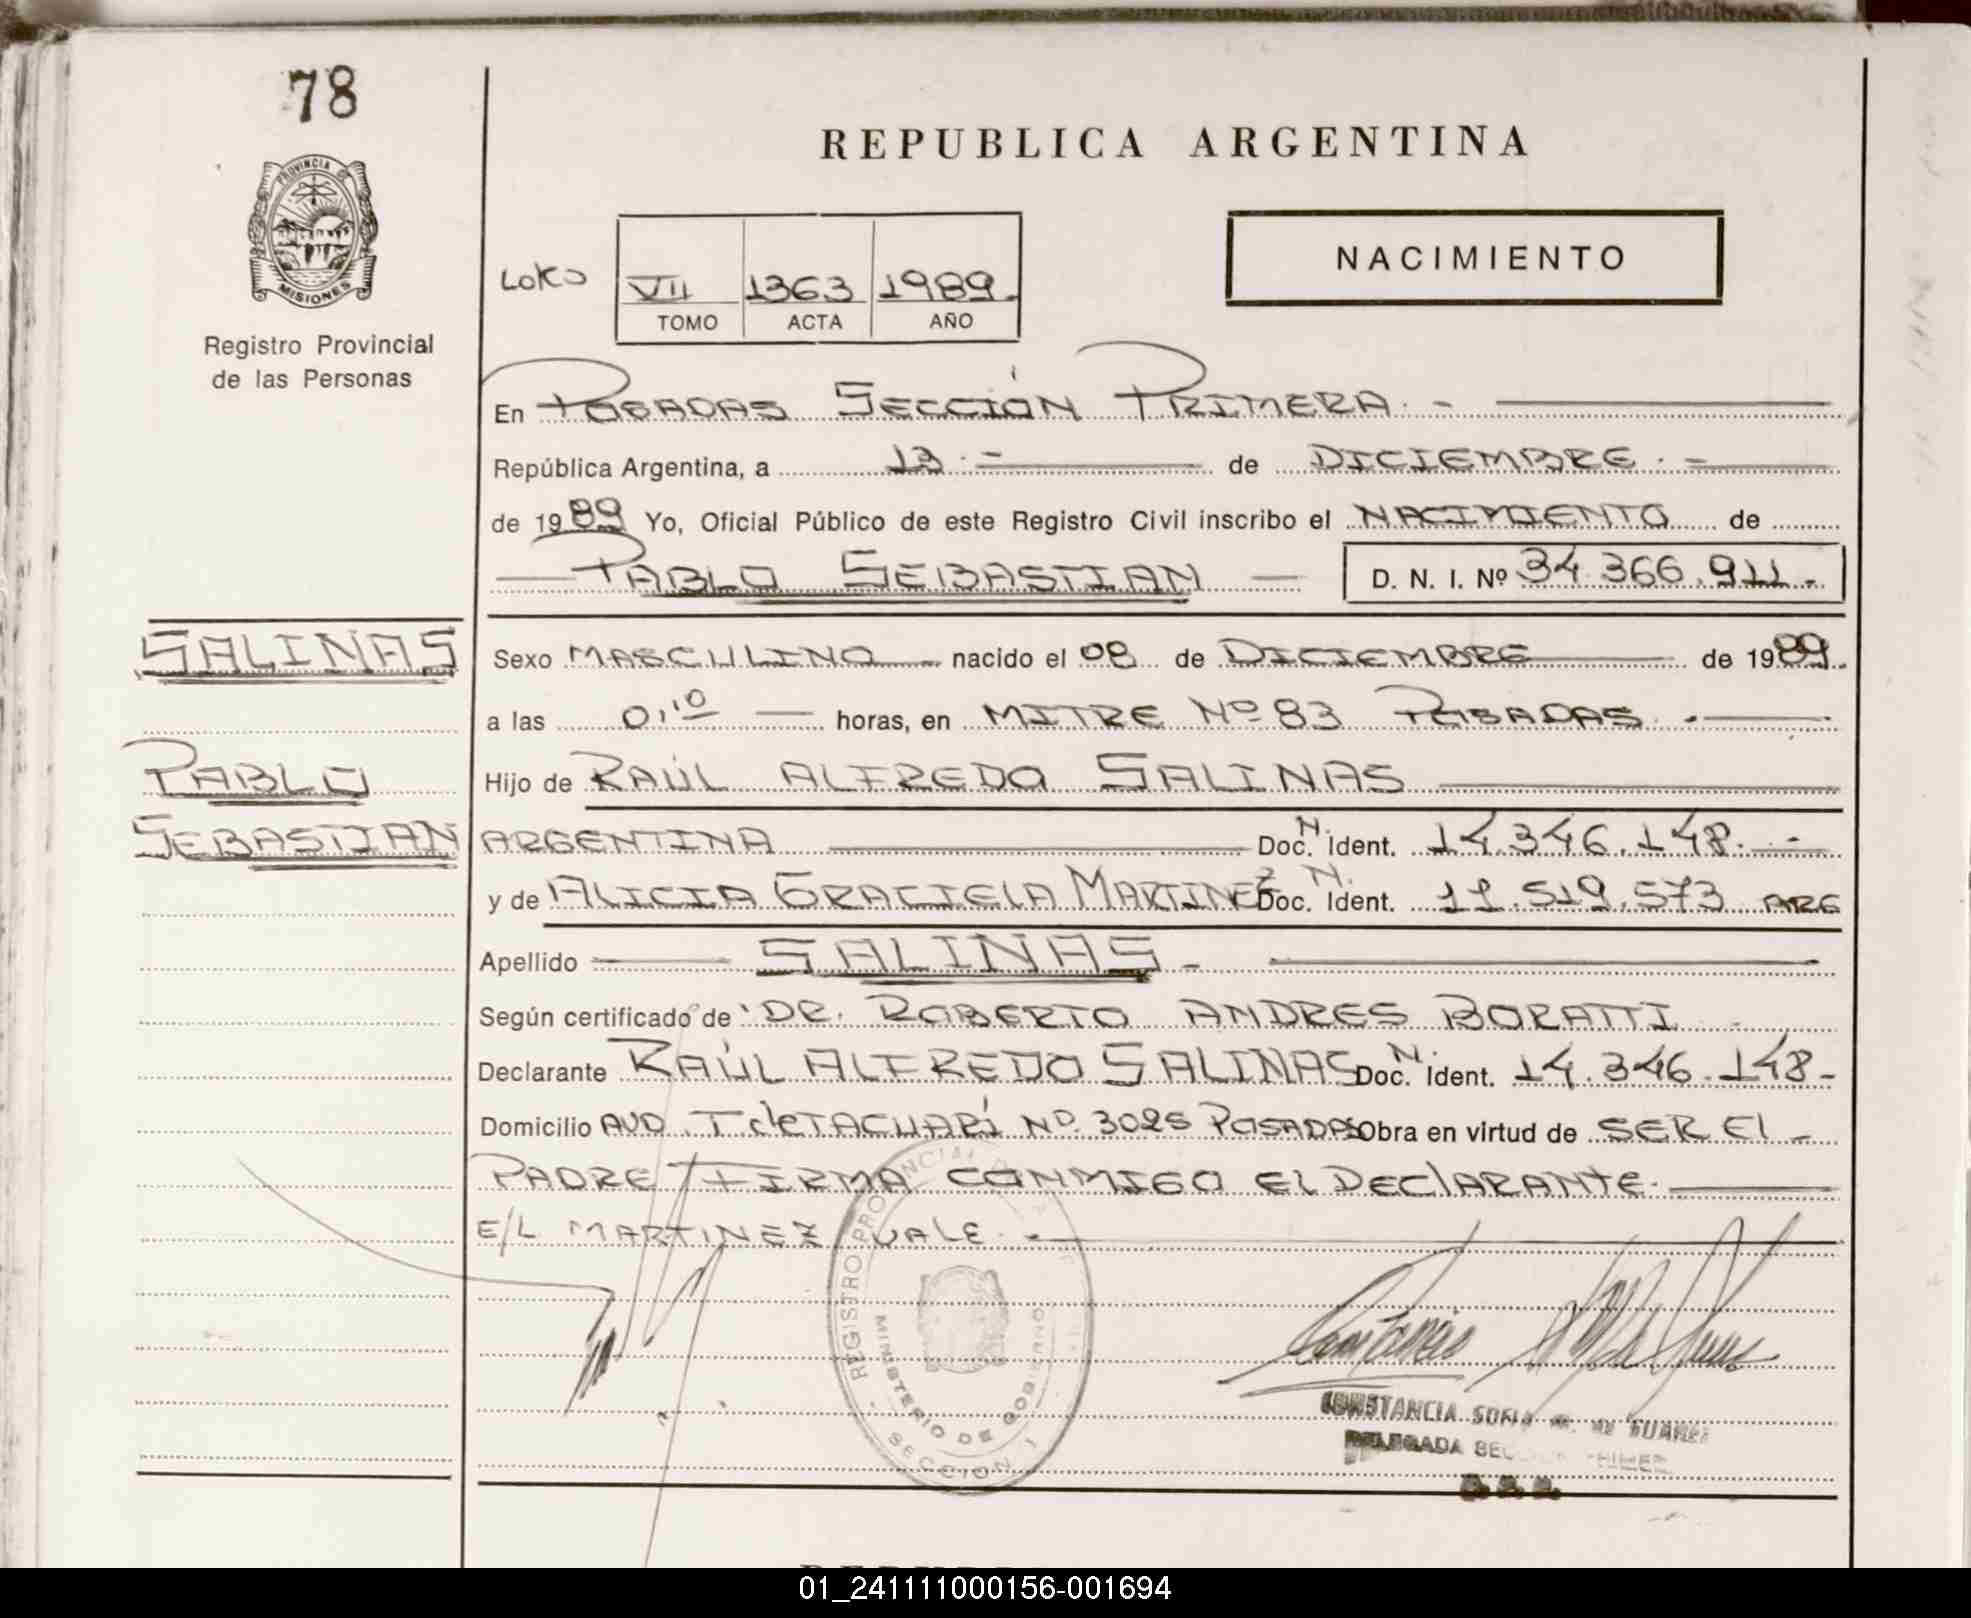 78
REPUBLICA ARGENTINA
PROVINCIA DE
MISIONES
Registro Provincial
de las Personas
NACIMIENTO
VII 1363 1989.
TOMO ACTA AÑO
En POSADAS SECCIÓN PRIMERA. -
República Argentina, a 13. - de DICIEMBRE. -
de 1989 Yo, Oficial Público de este Registro Civil inscribo el NACIMIENTO de
PABLO SEBASTIAN D. N. I. Nº 34.366.911.-
SALINAS
PABLO
SEBASTIAN
Sexo MASCULINO nacido el 08 de DICIEMBRE de 1989.
a las 0,10 horas, en MITRE Nº 83 POSADAS. -
Hijo de RAÚL ALFREDO SALINAS
ARGENTINA Doc. N. Ident. 14.346.148. -
y de ALICIA GRACIELA MARTINEZ Doc. N. Ident. 11.519.573 ARG
Apellido SALINAS -
Según certificado de DR. ROBERTO ANDRES BORATTI
Declarante RAÚL ALFREDO SALINAS Doc. N. Ident. 14.346.148-
Domicilio AVD. T de TACUARÍ Nº 3025 POSADAS Obra en virtud de SER El -
PADRE FIRMA CONMIGO El DEClARANTE.
E/L MARTINEZ VALE. -
REGISTRO PROVINCIAL
MINISTERIO DE GOBIERNO
SECCION 1
CONSTANCIA SOFIA M. de SUAREZ
DELEGADA
01_241111000156-001694